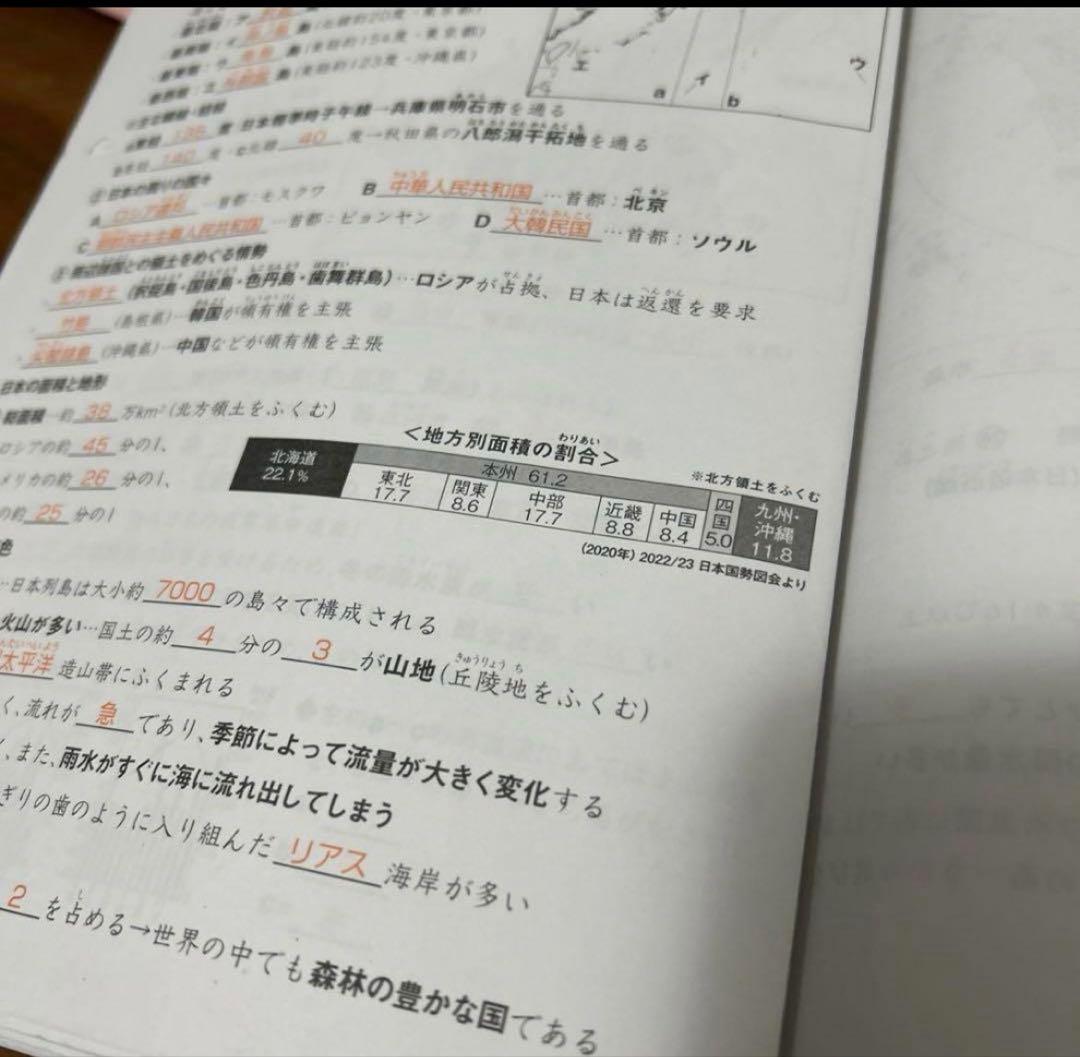 島(北緯約20度・東京都)
島(東経約154度・東京都)
島(東経約123度・沖縄県)
エ
a
イ
b
ウ
135 度 日本標準時子午線→兵庫県明石市を通る
140 度・c北緯 40 度→秋田県の八郎潟干拓地を通る
②日本の周りの国々
A ロシア連邦 …首都:モスクワ B 中華人民共和国 …首都:北京
C 朝鮮民主主義人民共和国 …首都:ピョンヤン D 大韓民国 …首都:ソウル
③周辺諸国との領土をめぐる情勢
北方領土 (択捉島・国後島・色丹島・歯舞群島)…ロシアが占拠、日本は返還を要求
竹島 (島根県)…韓国が領有権を主張
尖閣諸島 (沖縄県)…中国などが領有権を主張
日本の面積と地形
総面積…約 38 万km²(北方領土をふくむ)
ロシアの約 45 分の1、
メリカの約 26 分の1、
の約 25 分の1
<地方別面積の割合>
※北方領土をふくむ
北海道 22.1%
本州 61.2
東北 17.7
関東 8.6
中部 17.7
近畿 8.8
中国 8.4
四国 5.0
九州・沖縄 11.8
(2020年) 2022/23 日本国勢図会より
色
…日本列島は大小約 7000 の島々で構成される
火山が多い…国土の約 4 分の 3 が山地(丘陵地をふくむ)
太平洋 造山帯にふくまれる
く、流れが 急 であり、季節によって流量が大きく変化する
、また、雨水がすぐに海に流れ出してしまう
ぎりの歯のように入り組んだ リアス 海岸が多い
2 を占める→世界の中でも森林の豊かな国である